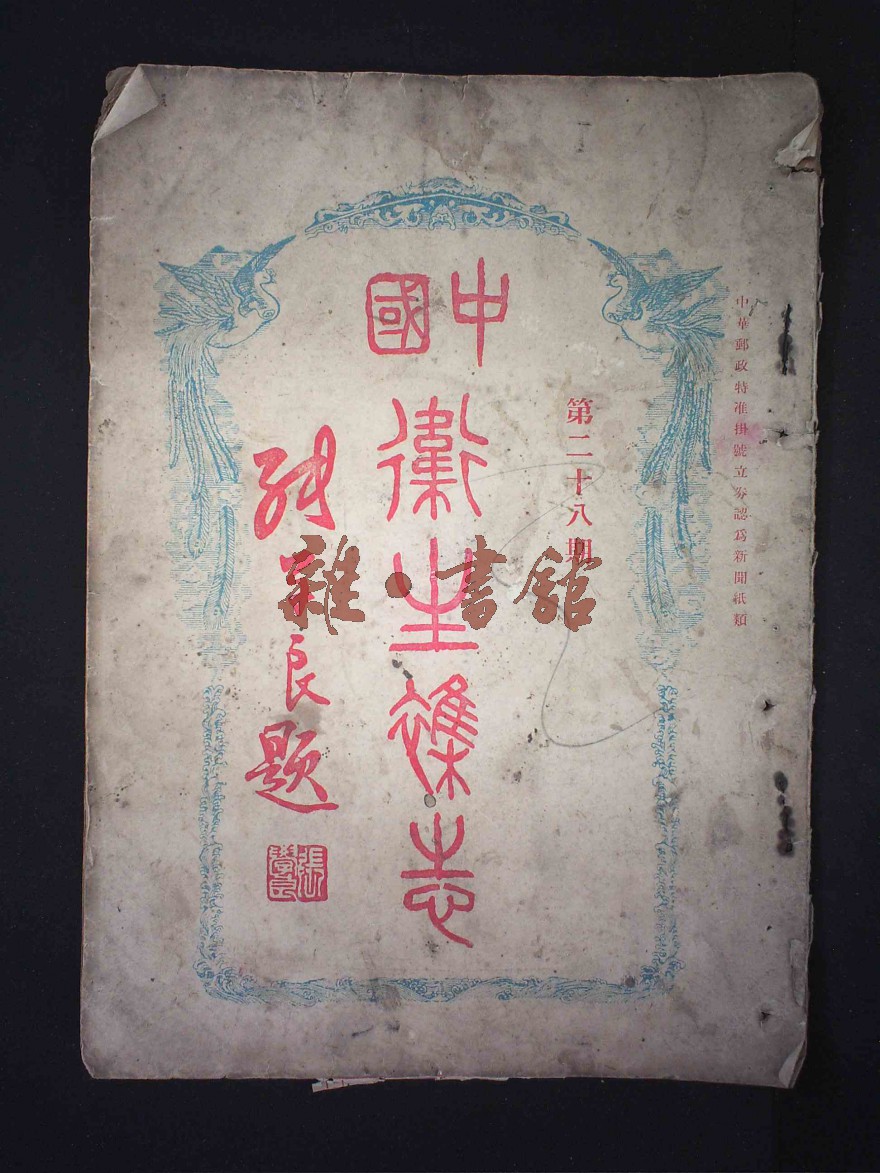 中華郵政特准掛號立券認爲新聞紙類
第二十八期
中國
衛生雜志
張學良題
張學良
雜·書館